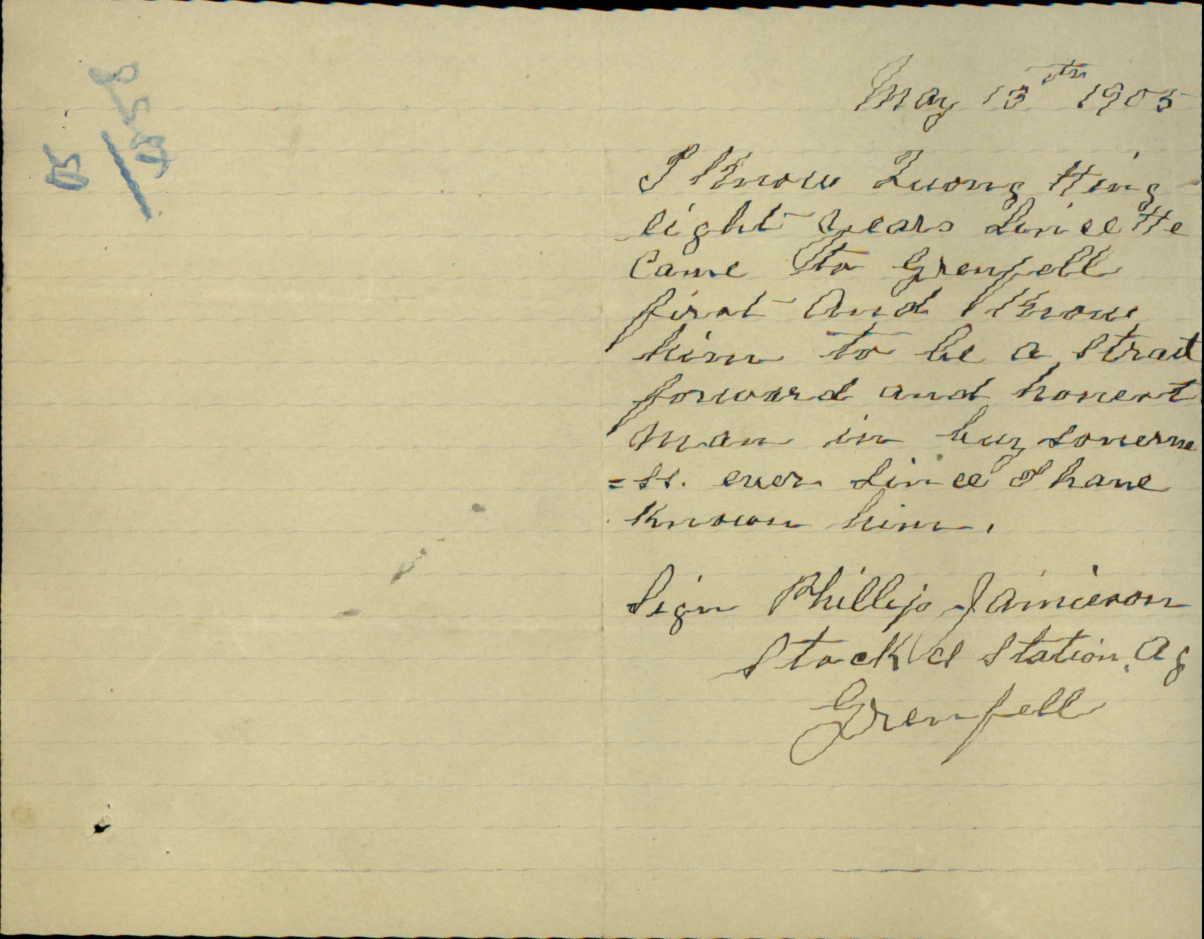 May 13th 1905
I Know Quong Hing
eight years Since He
Came to Grenfell
first And I Know
him to be a Strait
forward and honest
Man in buy soneme
=ss. ever Since I have
Known him.
Sign Phillip Jamieson
Stock & Station. Ag
Grenfell